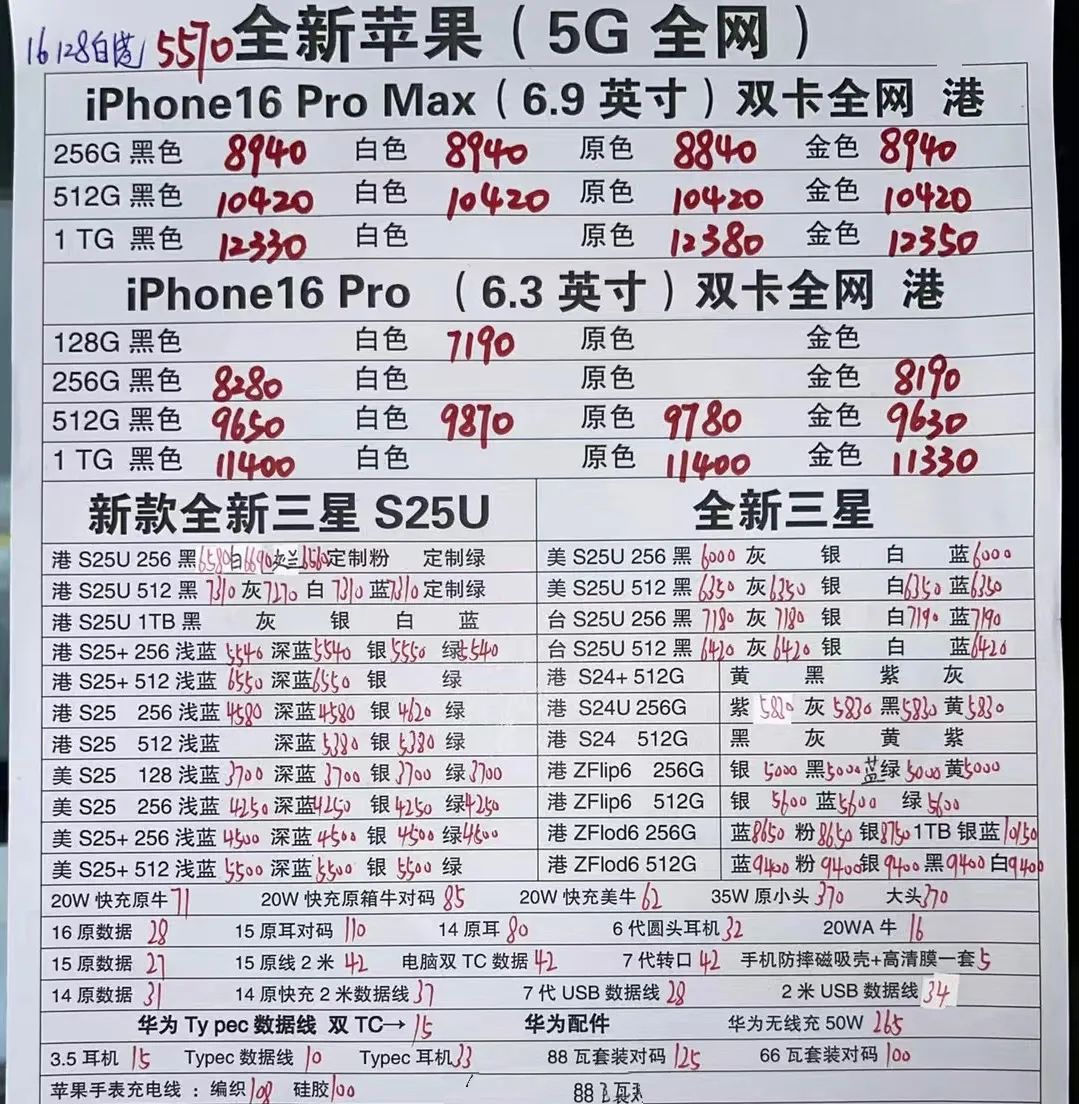 16 128白 5570 全新苹果（5G 全网）
iPhone16 Pro Max（6.9 英寸）双卡全网 港
256G 黑色 8940 白色 8940 原色 8840 金色 8940
512G 黑色 10420 白色 10420 原色 10420 金色 10420
1 TG 黑色 12330 白色 原色 12380 金色 12350
iPhone16 Pro （6.3 英寸）双卡全网 港
128G 黑色 白色 7190 原色 金色
256G 黑色 8280 白色 原色 金色 8190
512G 黑色 9650 白色 9870 原色 9780 金色 9630
1 TG 黑色 11400 白色 原色 11400 金色 11330
新款全新三星 S25U
港 S25U 256 黑6580白6690灰兰6560定制粉 定制绿
港 S25U 512 黑 7310 灰7270 白 7310 蓝7310定制绿
港 S25U 1TB 黑 灰 银 白 蓝
港 S25+ 256 浅蓝 5540 深蓝5540 银5550 绿5540
港 S25+ 512 浅蓝 6550 深蓝6550 银 绿
港 S25 256 浅蓝4580 深蓝4580 银4620 绿
港 S25 512 浅蓝 深蓝5380 银5380 绿
美 S25 128 浅蓝3700 深蓝3700 银3700 绿3700
美 S25 256 浅蓝4250 深蓝4250 银4250 绿4250
美 S25+ 256 浅蓝4500 深蓝4500 银4500 绿4500
美 S25+ 512 浅蓝5500 深蓝5500 银5500 绿
全新三星
美 S25U 256 黑6000 灰 银 白 蓝6000
美 S25U 512 黑6350 灰6350 银 白6350 蓝6350
台 S25U 256 黑7180 灰7180 银 白7190 蓝7190
台 S25U 512 黑6420 灰6420 银 白 蓝6420
港 S24+ 512G 黄 黑 紫 灰
港 S24U 256G 紫5830 灰5830 黑5830 黄5830
港 S24 512G 黑 灰 黄 紫
港 ZFlip6 256G 银 5000 黑5000蓝绿5000黄5000
港 ZFlip6 512G 银 5600 蓝5600 绿5600
港 ZFlod6 256G 蓝8650 粉8650 银8750 1TB 银蓝10150
港 ZFlod6 512G 蓝9400 粉9400银9400 黑9400 白9400
20W 快充原牛71 20W 快充原箱牛对码 85 20W 快充美牛 62 35W 原小头 370 大头370
16 原数据 28 15 原耳对码 110 14 原耳 80 6 代圆头耳机 32 20WA 牛 16
15 原数据 27 15 原线 2 米 42 电脑双 TC 数据 42 7 代转口 42 手机防摔磁吸壳+高清膜一套5
14 原数据 31 14 原快充 2 米数据线 37 7 代 USB 数据线 28 2 米 USB 数据线 34
华为 Ty pec 数据线 双 TC→ 15 华为配件 华为无线充 50W 265
3.5 耳机 15 Typec 数据线 10 Typec 耳机33 88 瓦套装对码 125 66 瓦套装对码 100
苹果手表充电线 ：编织108 硅胶100 88